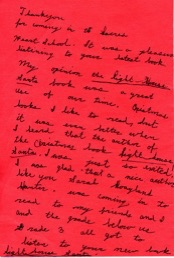 Thankyou
for coming in
School. It was a pleasure
listening to your latest book
My opinion the light House
Santa book was a great
use of our time. Christmas
books I like to read but
it was even better when
I heard that the author of
the Christmas book light house
Santa. I was just so excited!
I am glad that a nice author
like you Sarah
was coming to
read to my friends and I
and the grade below us
Grade 3 all got to
listen to your new book
light house Santa